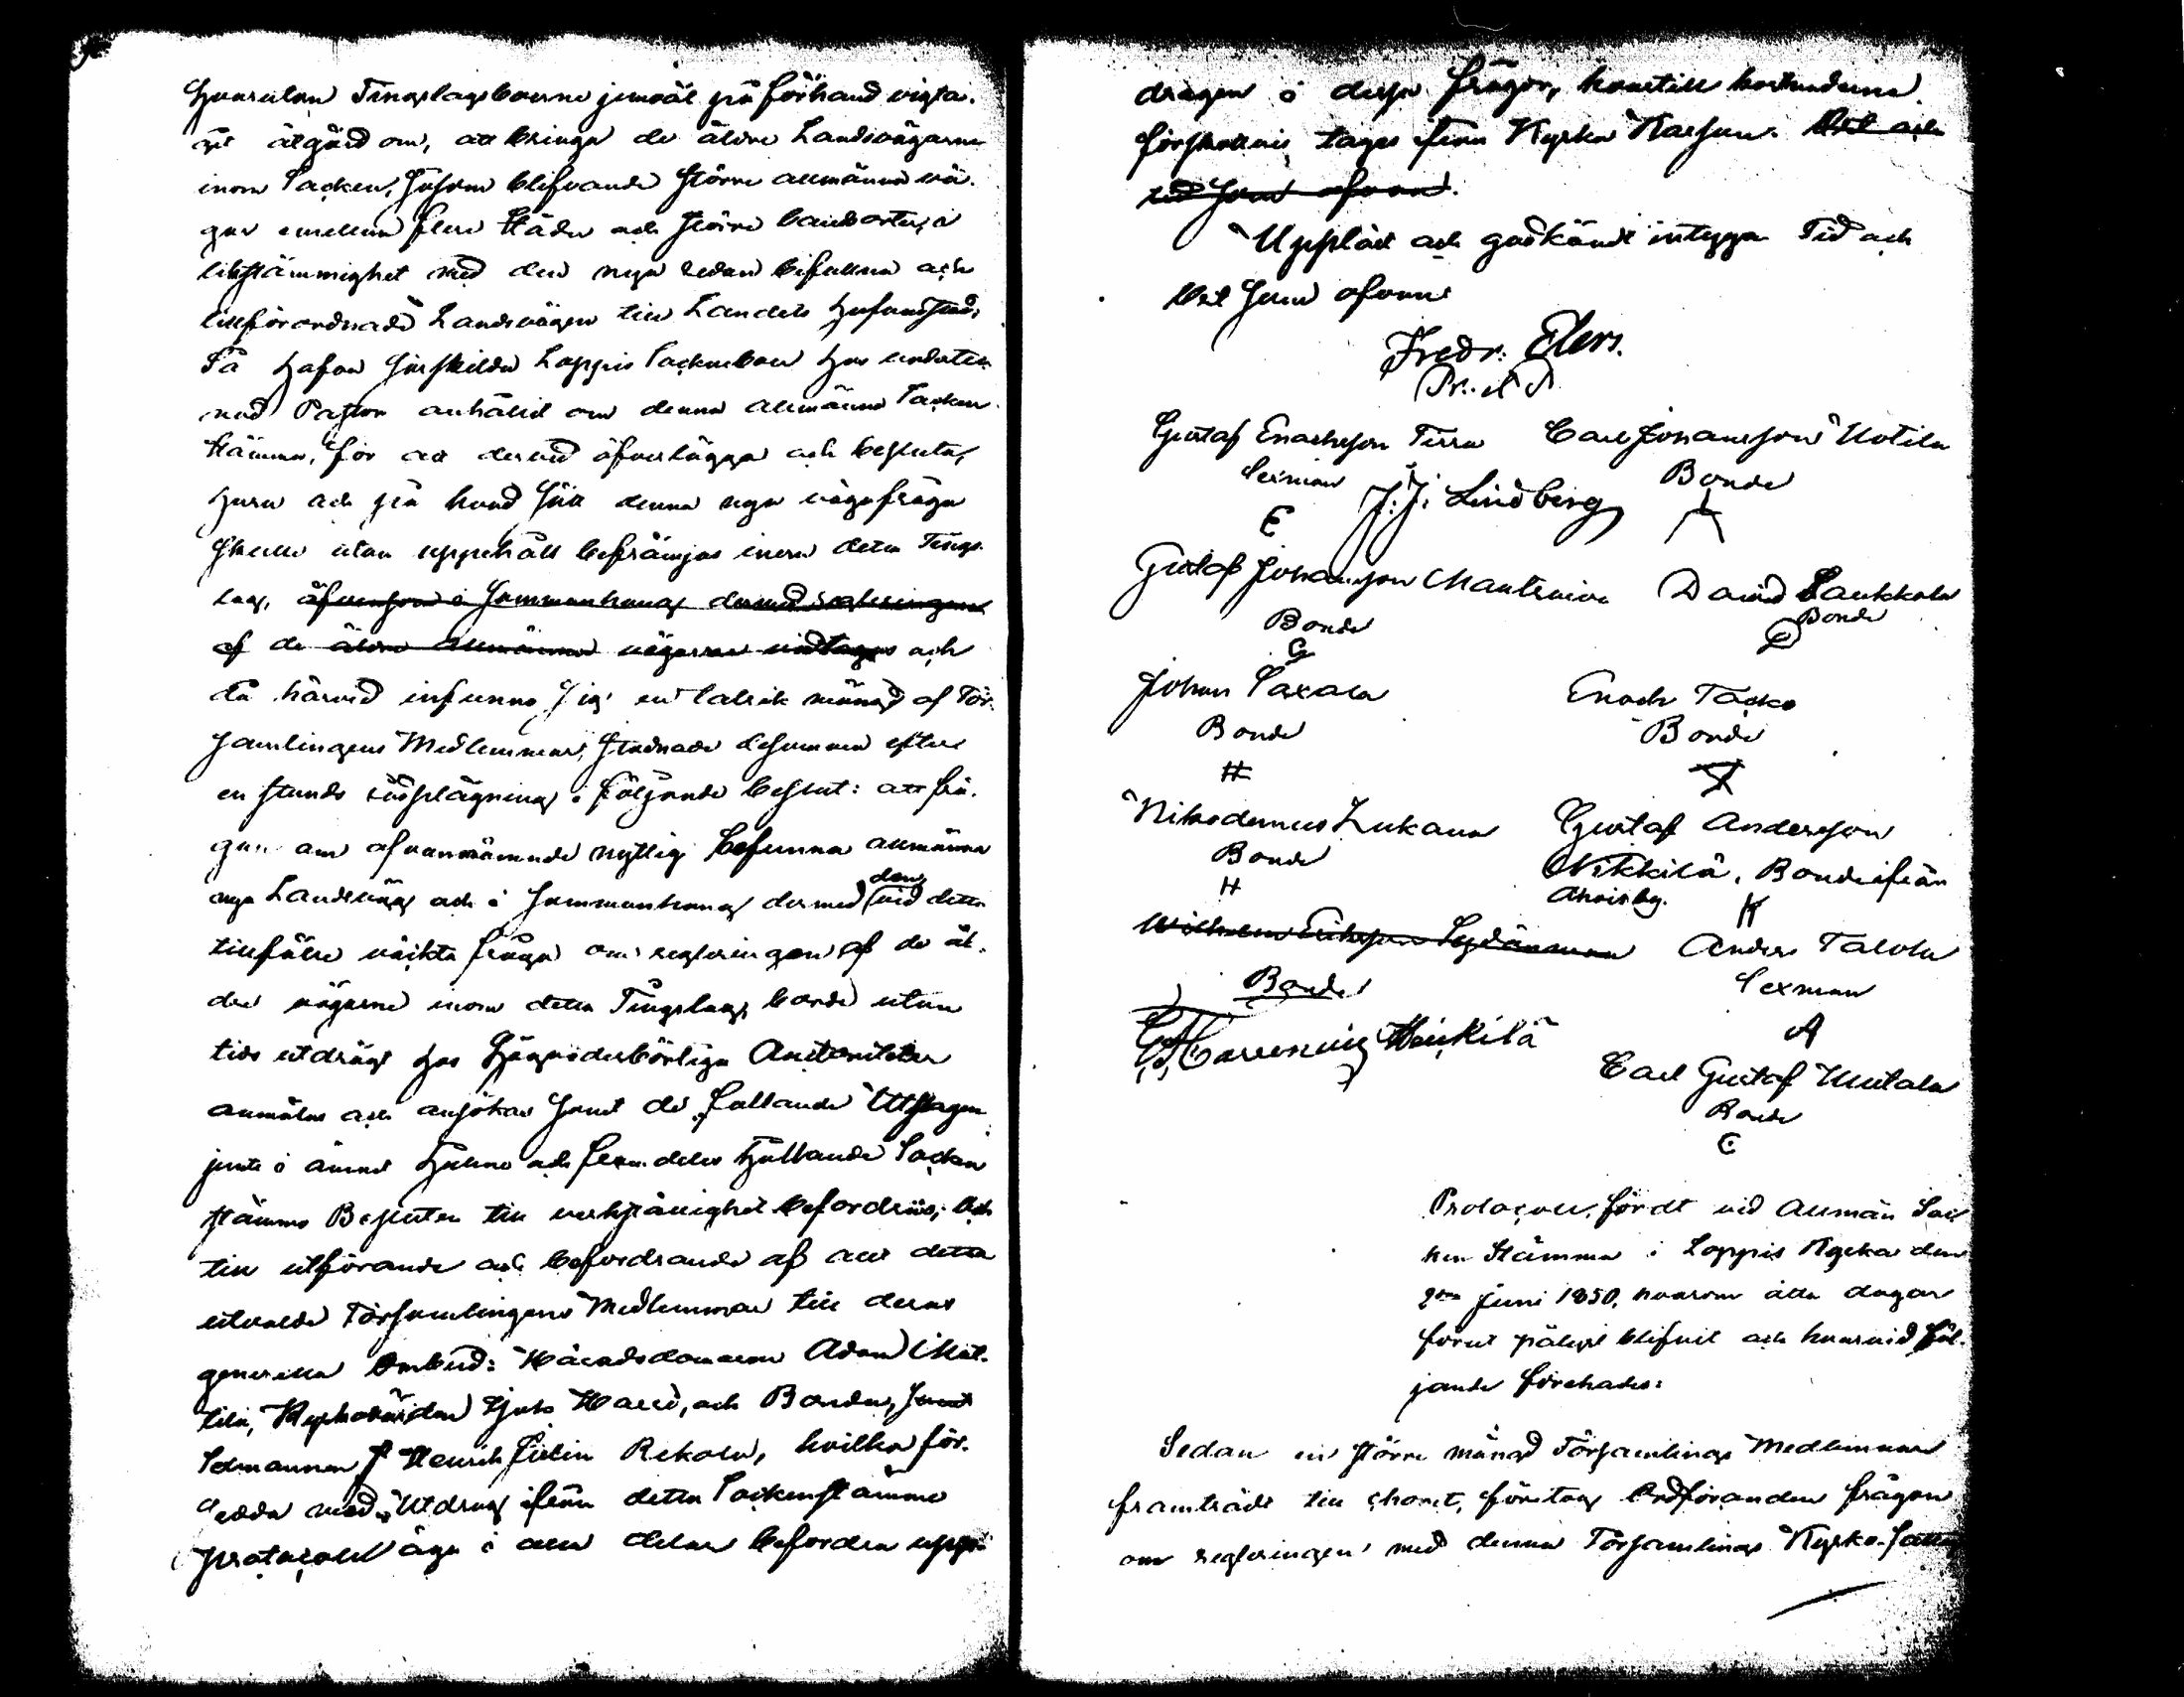 Hvarutom Tingslagsboerne jemväl på förhand vigta-
git åtgärd om, att bringa de äldre Landsvägarne
inom Socken, såsom blifvande större allmänna vä-
gar emellan flere städer och större landsorter, i
likstämmighet med den nya redan befallna och
tillförordnade Landsvägen till Landets Hufvudstad,
Så hafva särskilda Loppis Sockneboer hos underteck-
nad Pastor anhållit om denna allmänna Socken
stämma, för att dervid öfverlägga och besluta,
huru och på hvad sätt denna nya vägafråga
skulle utan uppehåll befrämjas inom detta Tings-
lag, äfvensom i sammanhang dermed regleringen
af de äldre allmänna vägarne vidtages och
då härvid infunno sig en talrik mängd af För-
samlingens Medlemmar, stadnade desamma efter
en stunds rådplägning i följande beslut: att frå-
gan om ofvannämnde nyttig befunna allmänna
nya Landsväg och i sammanhang dermed den vid detta
tillfälle väckta fråga om regleringen af de äl-
dre vägarne inom detta Tingslag, borde utan
tids utdrägt hos Högvederbörliga Auctoriteter
anmälas och ansökas samt de fallande Utslagen
jemte i ämnet hållne och framdeles hållande Socken
stämmo Besluten till verkställighet befordras; Och
till utförande och befordrande af allt detta
utvalde Församlingens Medlemmar till deras
generella Ombud: Häradsdomaren Adam Mat-
tila, Kyrkovärden Hjuks Harri, och Bonden, samt
Sexmannen Henrik Rekola, hvilka för-
sedda med Utdrag ifrån detta Sockenstämmo
protocoll äga i alla delar befordra uppr-
dragen i dessa frågor, hvartill kostnaderna
förskottvis tages från Kyrko Kassan. Ort och
tid som ofvan.
Uppläst och godkändt intygga Tid och
Ort som ofvan
Fredr. Elers.
Gustaf Enochsson Tirra Carl Johansson Uotila
Sexman Bonde
J. J. Lindberg
E
Gustaf Johansson Manteniva David Saukkola
Bonde Bonde
G D
Johan Saxala Enoch Tacko
Bonde Bonde
H
Nikodemus Lukana Gustaf Andersson
Bonde Nikkilä, Bonde ifrån
H Ahoisby.
Wilhelm Eriksson Anders Talola
Bonde Sexman
Heikkilä A
Carl Gustaf Uutala
Bonde
C
Protocoll, fördt vid Allmän Soc
ken Stämma i Loppis Kyrka den
9de Juni 1850, hvarom åtta dagar
förut pålyst blifvit och hvarvid föl-
jande förehades:
Sedan en större mängd Församlings Medlemmar
framträdt till choret, företog Ordföranden frågan
om regleringen med denna Församlings Kyrko-